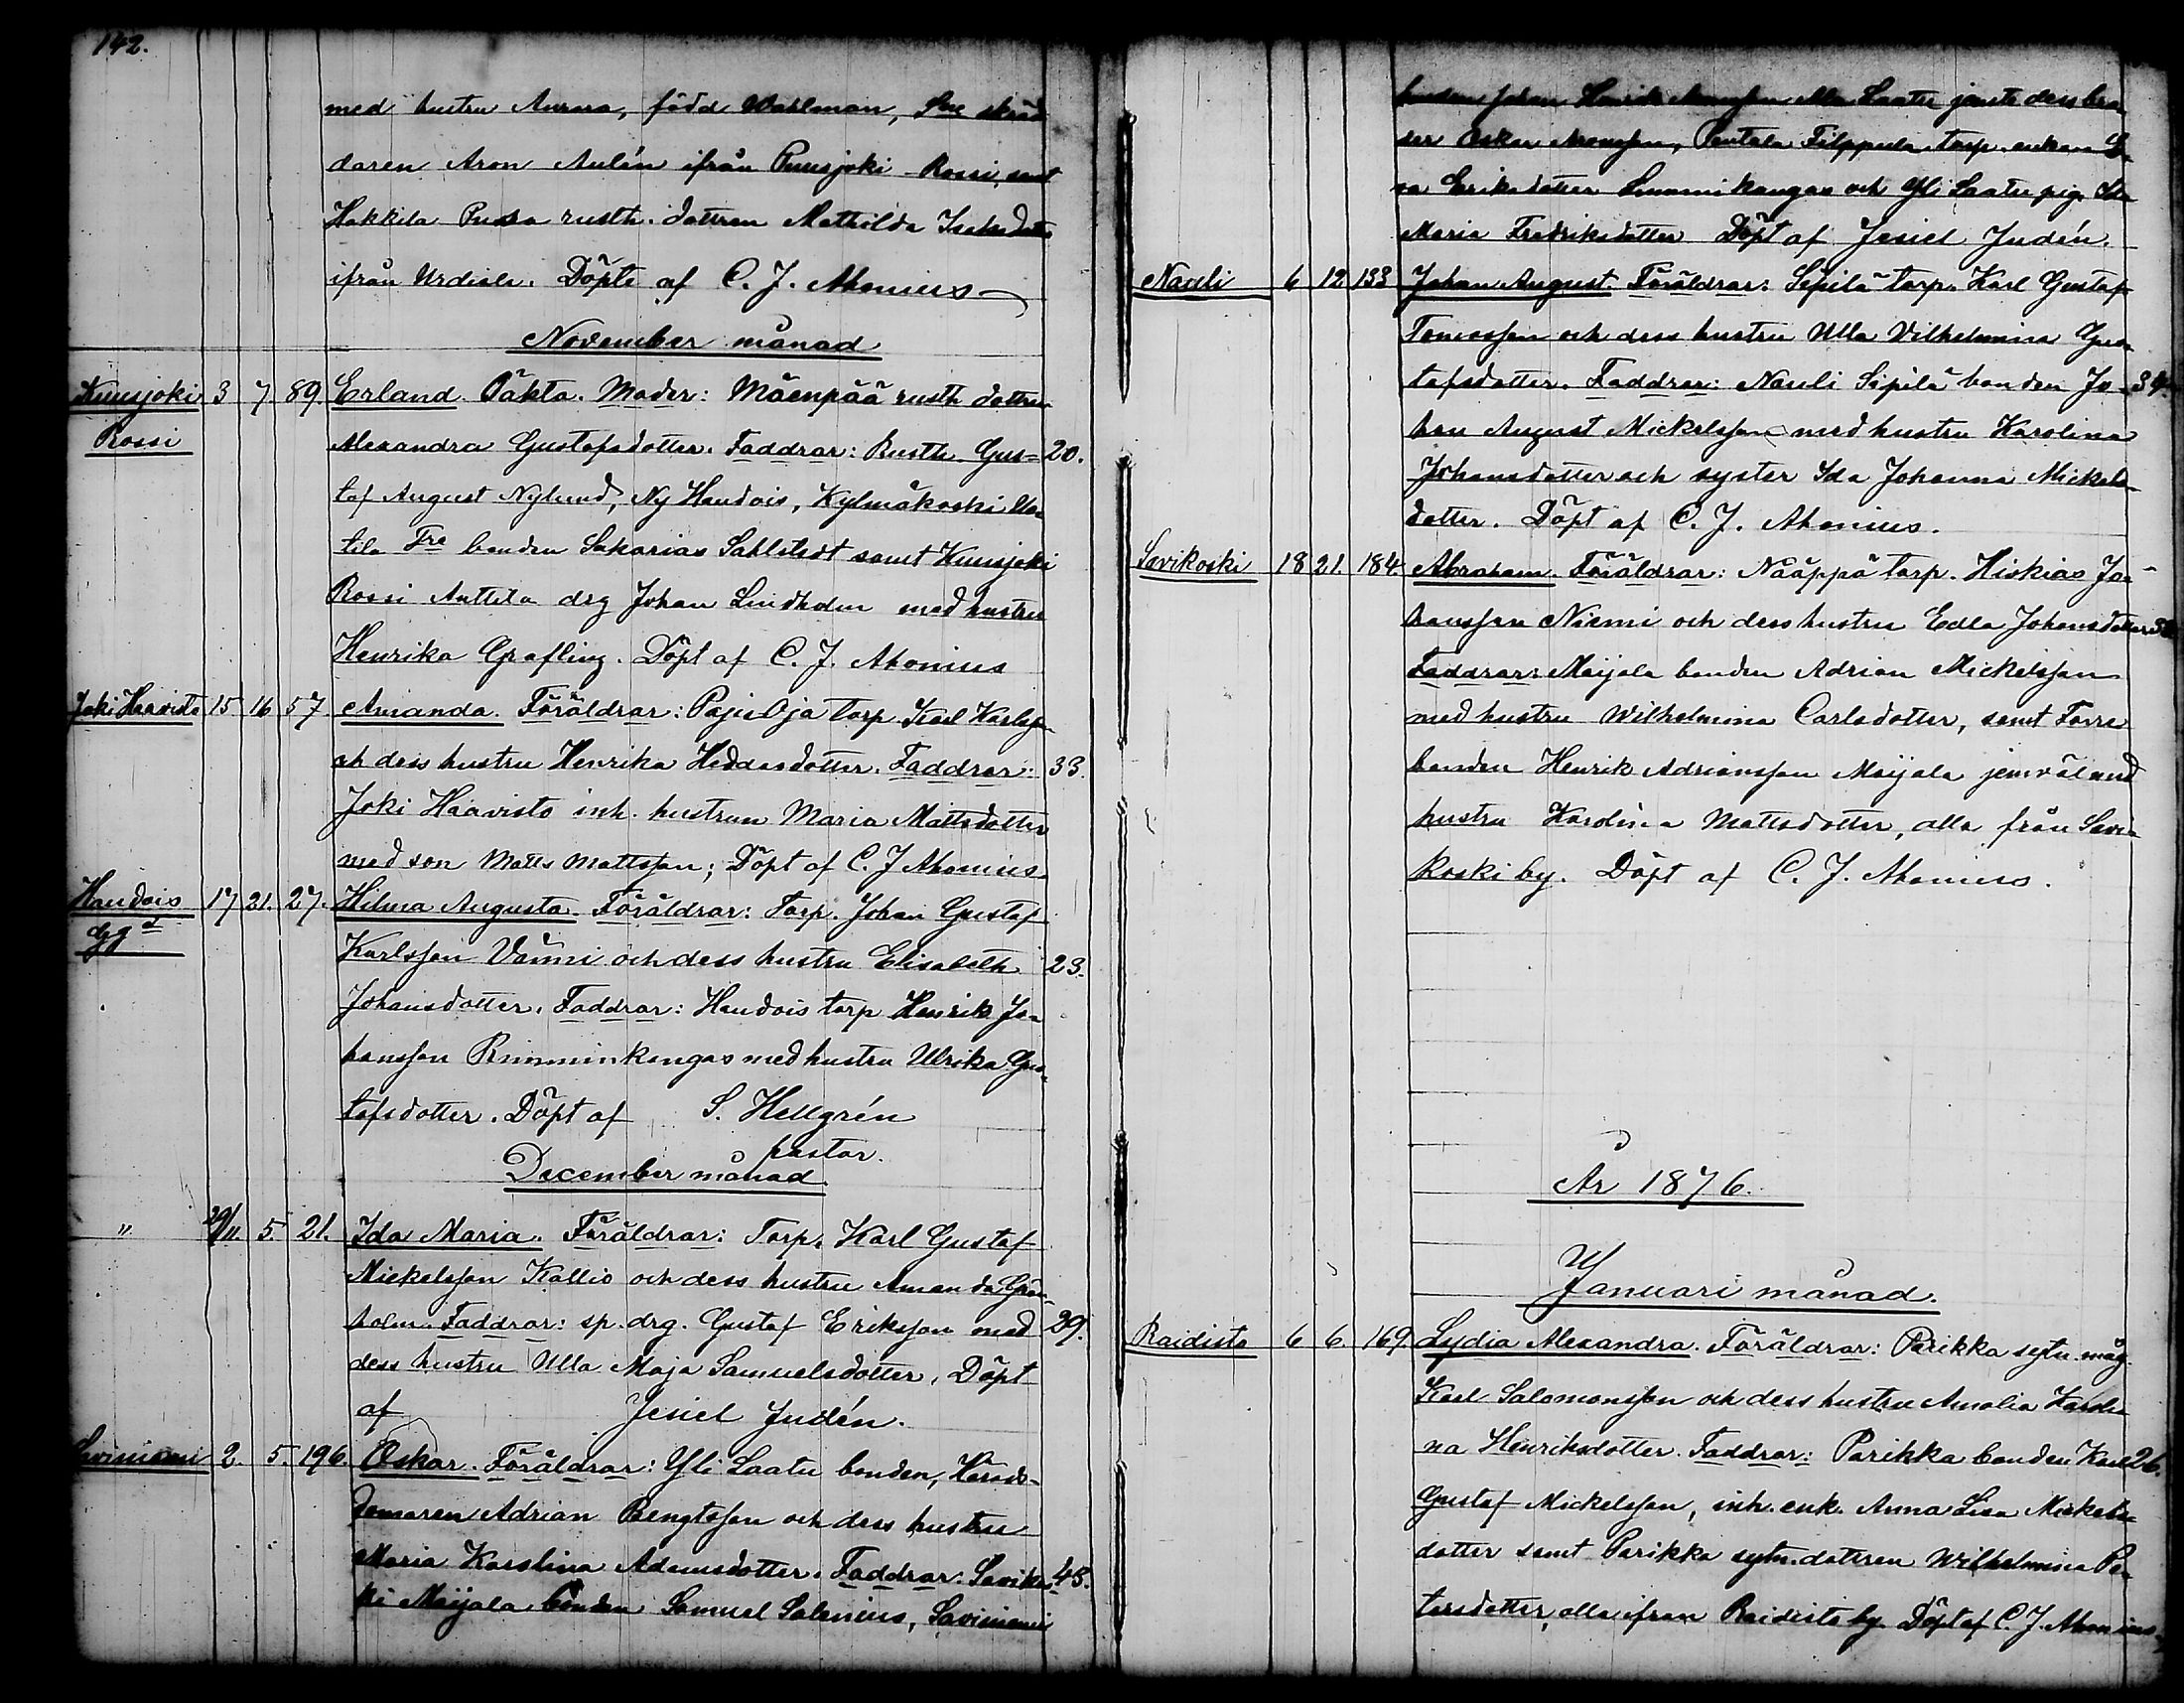 142.
med hustru Aurora, född Wahlman, Sne skräd
daren Aron Aulén ifrån Punsjoki Rossi, samt
Hakkila Pusa rusth. dottren Mathilda Isaksdotter
ifrån Urdiala. Döpte af C. J. Ahonius
November månad
Kuusjoki 3 7. 89. Erland Oäkta. Moder: Mäenpää rusth dottren
Rossi Alexandra Gustafsdotter. Faddrar: Rusth. Gus= 20.
taf August Nylund, Ny Haudois, Kylmäkoski Un
tila Fre bonden Sakarias Sahlstedt samt Kuusjoki
Rossi Anttila drg Johan Lindholm med hustru
Henrika Grafling. Döpt af C. J. Ahonius
Joki Haavisto 15 16 57 Amanda. Föräldrar: Pajuoja torp. Karl Karlsson
och dess hustru Henrika Heddasdotter. Faddrar: 33.
Joki Haavisto inh. hustrun Maria Mattsdotter
med son Matts Mattsson; Döpt af C. J Ahonius.
Haudois 17 21. 27. Hilma Augusta. Föräldrar: Torp. Johan Gustaf
Karlsson Vänni och dess hustru Elisabeth 23.
Johansdotter. Faddrar: Haudois torp Henrik Jo
hansson Rimminkangas med hustru Ulrika Gus
tafsdotter. Döpt af S. Hellgrén
pastor.
December månad
" 29/11. 5. 21. Ida Maria. Föräldrar: Torp. Karl Gustaf
Mickelsson Kallio och dess hustru Amanda Grön
holm. Faddrar: sp. drg. Gustaf Eriksson med 29.
dess hustru Ulla Maja Samuelsdotter, Döpt
af Jesiel Judén.
Saviniemi 2. 5. 196. Oskar. Föräldrar: Yli Laatu bonden, Härads-
domaren Adrian Bengtsson och dess hustru
Maria Karolina Adamsdotter. Faddrar: Saviko 45.
ki Maijala bonden Samuel Salenius, Saviniemi
bonden Johan Henrik Aronsson Ala Laatu jemte dess bro
der Oskar Aronsson, Pentala Filppula torp. enkan E
va Eriksdotter Lamminkangas och Yli Laatu pig. Ida
Maria Fredriksdotter Döpt af Jesiel Judén.
Nauli 6 12 133 Johan August. Föräldrar: Sipilä torp. Karl Gustaf
Tomasson och dess hustru Ulla Vilhelmina Gus
tafsdotter. Faddrar: Nauli Sipilä bonden Jo 34.
han August Mickelsson med hustru Karolina
Johansdotter och syster Ida Johanna Mickels
dotter. Döpt af C. J. Ahonius.
Savikoski 18 21. 184. Abraham. Föräldrar: Nääppä torp. Hiskias Jo
hansson Niemi och dess hustru Edla Johansdotter
Faddrar: Maijala bonden Adrian Mickelsson
med hustru Wilhelmina Carlsdotter, samt Torre
bonden Henrik Adriansson Maijala jemväl med
hustru Karolina Mattsdotter, alla från Savi
koski by. Döpt af C. J. Ahonius.
År 1876.
Januari månad.
Raidisto 6 6. 169. Lydia Alexandra. Föräldrar: Parikka sytn. måg
Karl Salomonsson och dess hustru Amalia Karoli
na Henriksdotter. Faddrar: Parikka bonden Karl 26.
Gustaf Mickelsson, inh. enk. Anna Lisa Mickels
dotter samt Parikka sytn. dottren Wilhelmina Pe
tersdotter, alla ifrån Raidisto by. Döpt af C. J. Ahonius.